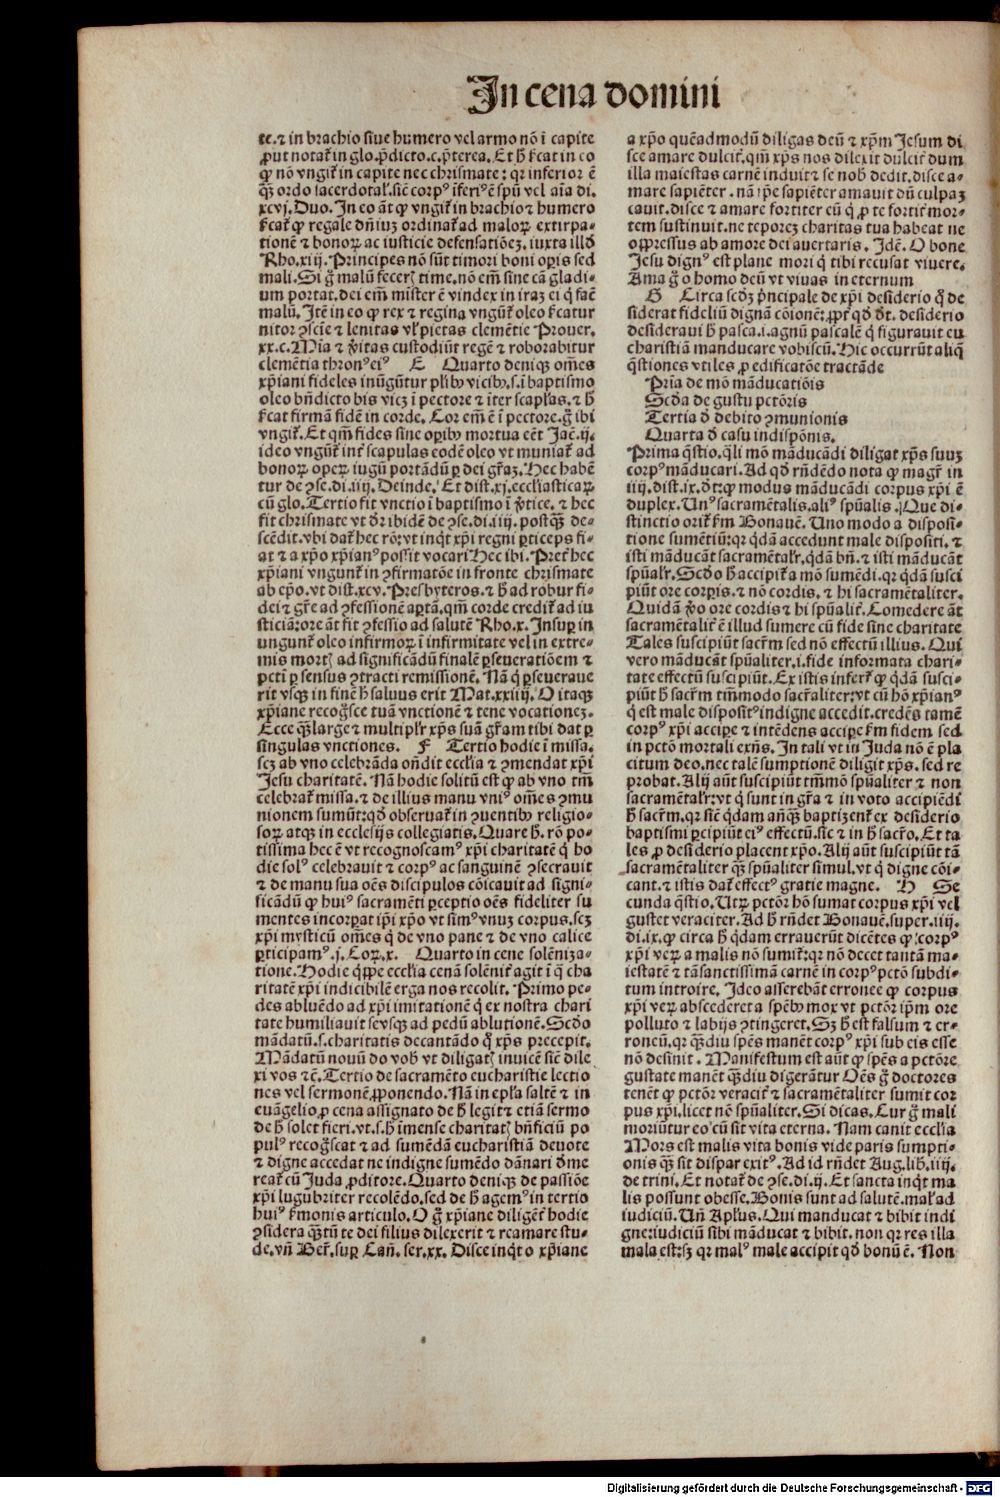 In cena domini
te.⁊ in brachio siue humero vel armo nõ ĩ capite
ꝓut notat̃ in glo.p̃dicto.c.p̃terea. Et h̃ ſcat in eo
ꝙ nõ vngit̃ in capite nec chrismate: qꝛ inferior ẽ
q̃ꝫ ordo sacerdotal̃.sic̃ corpꝰ ĩferiꝰ ẽ spũ vel aĩa di.
xcvj. Duo. In eo aũt ꝙ vngit̃ in brachio ⁊ humero
ſcat̃ ꝙ regale dñiuꝫ ordinat̃ ad maloꝝ extirpa-
tionẽ ⁊ bonoꝝ ac iusticie defensatiõeꝫ. iuxta illd̃
Rho.xiij. Principes nõ sũt timori boni oꝑis sed
mali. Si g̃ malũ fecerꝭ time. nõ em̃ sine cã gladi-
um portat. dei em̃ mĩster ẽ vindex in iraꝫ ei q̃ facit
malũ. Itẽ in eo ꝙ rex ⁊ regina vngũt̃ oleo ſcatur
nitor ꝯsciẽ ⁊ lenitas vl̃ pietas clemẽtie Prouer.
xx.c. Mĩa ⁊ ṽitas custodiũt regẽ ⁊ roborabitur
clemẽtia thronꝰ eiꝰ E Quarto deniqꝫ om̃es
xp̃iani fideles inũgũtur plꝛibꝰ vicibꝰ. s. ĩ baptismo
oleo bñdicto bis vicꝫ ĩ pectore ⁊ ĩter scapl̃as. ⁊ h̃
ſcat firmã fidẽ in corde. Cor em̃ ẽ ĩ pectore. g̃ ibi
vngit̃. Et qm̃ fides sine oꝑibꝰ mortua eẽt Jac̃.ij.
ideo vngũt̃ int̃ scapulas eodẽ oleo vt muniat̃ ad
bonoꝝ opeꝝ iugũ portãdũ ꝑ dei gr̃aꝫ. Hec habẽ
tur de ꝯse.di.iiij. Deinde. Et dist.xj. eccl̃iasticaꝝ.
cũ glo. Tertio fit vnctio ĩ baptismo ĩ ṽtice. ⁊ hec
fit chrismate vt dr̃ ibidẽ de ꝯse.di.iiij. postq̃ꝫ de-
scẽdit. vbi dat̃ hec rõ: vt inq̃t xp̃i regni ꝑticeps fi-
at ⁊ a xp̃o xp̃ianꝰ possit vocari Hec ibi. Pret̃ hec
xp̃iani vngunt̃ in ꝯfirmatõe in fronte chrismate
ab ep̃o. vt dist.xcv. Presbyteros. ⁊ h̃ ad robur fi-
dei ⁊ gr̃e ad ꝯfessionẽ aꝑtã. qm̃ corde credit̃ ad iu
sticiã: ore aũt fit ꝯfessio ad salutẽ Rho.x. Insuꝑ in
ungunt̃ oleo infirmoꝝ ĩ infirmitate vel in extre-
mis mortꝭ ad significãdũ finalẽ ꝑseueratiõem ⁊
pctĩ ꝑ sensus ꝯtracti remissionẽ. Nã q̃ ꝑseuerauerit
vsqꝫ in finẽ h̃ saluus erit Mat.xxiij. O itaqꝫ
xp̃iane recog̃sce tuã vnctionẽ ⁊ tene vocationeꝫ.
Ecce q̃ꝫ large ⁊ multipl̃r xp̃s suã gr̃am tibi dat ꝑ
singulas vnctiones. F Tertio hodie ĩ missa.
scꝫ ab vno celebrãda oñdit eccl̃ia ⁊ ꝯmendat xp̃i
Jesu charitatẽ. Nã hodie solitũ est ꝙ ab vno tm̃
celebrat̃ missa. ⁊ de illius manu vniꝰ om̃es ꝯmu
nionem sumũt: qd̃ obseruat̃ in ꝯuentibꝰ religio-
soꝝ atqꝫ in ecclesijs collegiatis. Quare h̃. rõ po-
tissima hec ẽ vt recognoscamꝰ xp̃i charitatẽ q̃ ho
die solꝰ celebrauit ⁊ corpꝰ ac sanguinẽ ꝯsecrauit
⁊ de manu sua oẽs discipulos cõicauit ad signi-
ficãdũ ꝙ huiꝰ sacramẽti ꝑceptio oẽs fideliter su
mentes incorꝑat ip̃i xp̃o vt simꝰ vnuꝫ corpus. scꝫ
xp̃i mysticũ om̃es q̃ de vno pane ⁊ de vno calice
ꝑticipamꝰ.j. Coꝝ.x. Quarto in cene solẽniza-
tione. Hodie q̃ꝓꝑe eccl̃ia cenã solẽnit̃ agit ĩ q̃ cha
ritatẽ xp̃i indicibilẽ erga nos recolit. Primo pe-
des abluẽdo ad xp̃i imitationẽ q̃ ex nostra chari
tate humiliauit se vsqꝫ ad pedũ ablutionẽ. Scd̃o
mãdatũ.s. charitatis decantãdo q̃ xp̃s precepit.
Mãdatũ nouũ do vobꝭ vt diligatꝭ inuicẽ sic̃ dile
xi vos ⁊c̃. Tertio de sacramẽto eucharistie lectio
nes vel sermonẽ ꝓponendo. Nã in ep̃la saltẽ ⁊ in
euãgelio ꝓ cena assignato de h̃ legit̃ ⁊ etiã sermo
de h̃ solet fieri. vt.s. h̃ imense charitatꝭ bñficiũ po
pulꝰ recog̃scat ⁊ ad sumẽdã eucharistiã deuote
⁊ digne accedat ne indigne sumẽdo dãnari d̃me
reat̃ cũ Juda ꝓditore. Quarto deniqꝫ de passiõe
xp̃i lugubriter recolẽdo. sed de h̃ agemꝰ in tertio
huiꝰ ſmonis articulo. O g̃ xp̃iane diligẽt̃ hodie
ꝯsidera q̃ꝫtũ te dei filius dilexerit ⁊ reamare stu-
de. vñ Ber̃. suꝑ Cañ. ser.xx. Disce inq̃t o xp̃iane
a xp̃o quẽadmodũ diligas deũ ⁊ xp̃m Jesum di
sce amare dulcit̃. qm̃ xp̃s nos dilexit dulcit̃ dum
illa maiestas carnẽ induit ⁊ se nobꝭ dedit. disce a-
mare sapiẽter. nã ip̃e sapiẽter amauit dũ culpaꝫ
cauit. disce ⁊ amare fortiter cũ q̃ ꝓ te fortit̃ mor-
tem sustinuit. ne teporeꝫ charitas tua habeat ne
oppressus ab amore dei auertaris. Idẽ. O bone
Jesu dignꝰ est plane mori q̃ tibi recusat viuere.
Ama g̃ o homo deũ vt viuas in eternum
G Circa scd̃ꝫ p̃ncipale de xp̃i desiderio q̃ de
siderat fideliũ dignã cõionẽ: ꝓpt̃ qd̃ dt̃. desiderio
desideraui h̃ pasca.i. agnũ pascalẽ q̃ figurauit eu
charistiã manducare vobiscũ. Hic occurrũt aliq̃
q̃stiones vtiles ꝓ edificatõe tractãde
Prĩa de mõ mãducatiõis
Scd̃a de gustu pctõris
Tertia d̃ debito ꝯmunionis
Quarta d̃ casu indispõnis.
Prima q̃stio. q̃li mõ mãducãdi diligat xp̃s suuꝫ
corpꝰ mãducari. Ad qd̃ rñdẽdo nota ꝙ magr̃ in
iiij. dist.ix. dt̃: ꝙ modus mãducãdi corpus xp̃i ẽ
duplex. Unꝰ sacramẽtalis. aliꝰ spũalis. Que di-
stinctio orit̃ ẜm Bonauẽ. Uno modo a disposi-
tione sumẽtiũ: qꝛ q̃dã accedunt male dispositi. ⁊
isti mãducãt sacramẽtal̃r. q̃dã bñ. ⁊ isti mãducãt
spũal̃r. Scd̃o h̃ accipit̃ a mõ sumẽdi. qꝛ q̃dã susci
piũt ore corꝑis. ⁊ nõ cordis. ⁊ hi sacramẽtaliter.
Quidã ṽo ore cordis ⁊ hi spũalit̃. Comedere aũt
sacramẽtalit̃ ẽ illud sumere cũ fide sine charitate
Tales suscipiũt sacr̃m sed nõ effectũ illius. Qui
vero mãducãt spũaliter.i. fide informata chari-
tate effectũ suscipiũt. Ex istis infert̃ ꝙ q̃dã susci-
piũt h̃ sacr̃m tm̃modo sacr̃aliter: vt cũ hõ xp̃ianꝰ
q̃ est male dispositꝰ indigne accedit. credẽs tamẽ
corpꝰ xp̃i accipe ⁊ intẽdens accipe ẜm fidem sed
in pctõ mortali exñs. In tali vt in Juda nõ ẽ pla
citum deo. nec talẽ sumptionẽ diligit xp̃s. sed re
probat. Alij aũt suscipiũt tm̃mõ spũaliter ⁊ non
sacramẽtal̃r: vt q̃ sunt in gr̃a ⁊ in voto accipiẽdi
h̃ sacr̃m. qꝛ sic̃ q̃dam añq̃ꝫ baptizent̃ ex desiderio
baptismi ꝑcipiũt eiꝰ effectũ. sic ⁊ in h̃ sacr̃o. Et ta
les ꝓ desiderio placent xp̃o. Alij aũt suscipiũt tã
sacramẽtaliter q̃ꝫ spũaliter simul. vt q̃ digne cõi-
cant. ⁊ istis dat̃ effectꝰ gratie magne. H Se
cunda q̃stio. Utꝝ pctõr hõ sumat corpus xp̃i vel
gustet veraciter. Ad h̃ rñdet Bonauẽ. super.iiij.
di.ix. ꝙ circa h̃ q̃dam errauerũt dicẽtes ꝙ corpꝰ
xp̃i veꝝ a malis nõ sumit̃: qꝛ nõ decet tantã ma-
iestatẽ ⁊ tã sanctissimã carnẽ in corpꝰ pctõ subdi-
tum introire. Ideo asserebãt erronee ꝙ corpus
xp̃i veꝝ abscederet a speb̃ꝰ mox vt pctõr ip̃m ore
polluto ⁊ labijs ꝯtingeret. Sꝫ h̃ est falsum ⁊ er-
roneũ. qꝛ q̃ꝫdiu spẽs manẽt corpꝰ xp̃i sub eis esse
nõ desinit. Manifestum est aũt ꝙ spẽs a pctõre
gustate manẽt q̃ꝫdiu digerãtur Oẽs g̃ doctores
tenẽt ꝙ pctõr veracit̃ ⁊ sacramẽtaliter sumit cor
pus xp̃i. licet nõ spũaliter. Si dicas. Cur g̃ mali
moriũtur eo cũ sit vita eterna. Nam canit eccl̃ia
Mors est malis vita bonis vide paris sumpti-
onis q̃ꝫ sit dispar exitꝰ. Ad id rñdet Aug. lib̃.iiij.
de trini. Et notat̃ de ꝯse.di.ij. Et sancta inq̃t ma
lis possunt obesse. Bonis sunt ad salutẽ. mal̃ ad
iudiciũ. Uñ Apl̃us. Qui manducat ⁊ bibit indi
gne: iudiciũ sibi mãducat ⁊ bibit. non qꝛ res illa
mala est: sꝫ qꝛ malꝰ male accipit qd̃ bonũ ẽ. Non
Digitalisierung gefördert durch die Deutsche Forschungsgemeinschaft - DFG